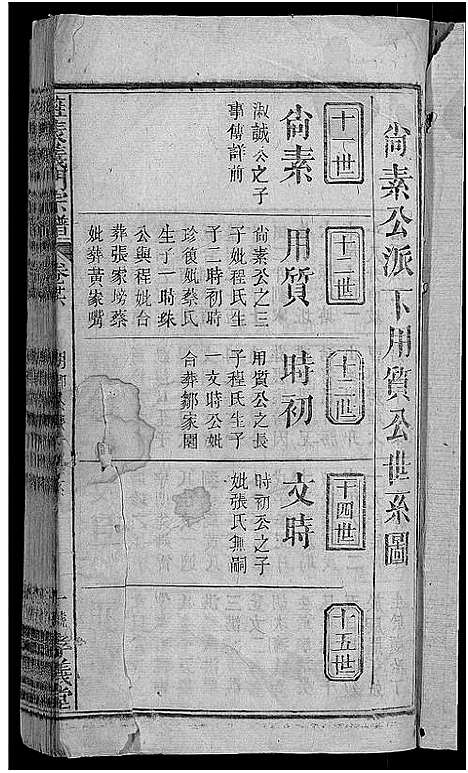 尙素公派下用質公世系圖
十一世
尙素
淑誠公之子
事傳詳前
十二世
用質
尙素公之三
子妣程氏生
子三時初時
珍復妣蔡氏
生子一時珠
公與程妣合
葬張家塝蔡
妣葬黃家嘴
十三世
時初
用質公之長
子程氏生子
一文時公妣
合葬鄒家園
十四世
文時
時初公之子
妣張氏無嗣
十五世
義門宗譜
孝義堂